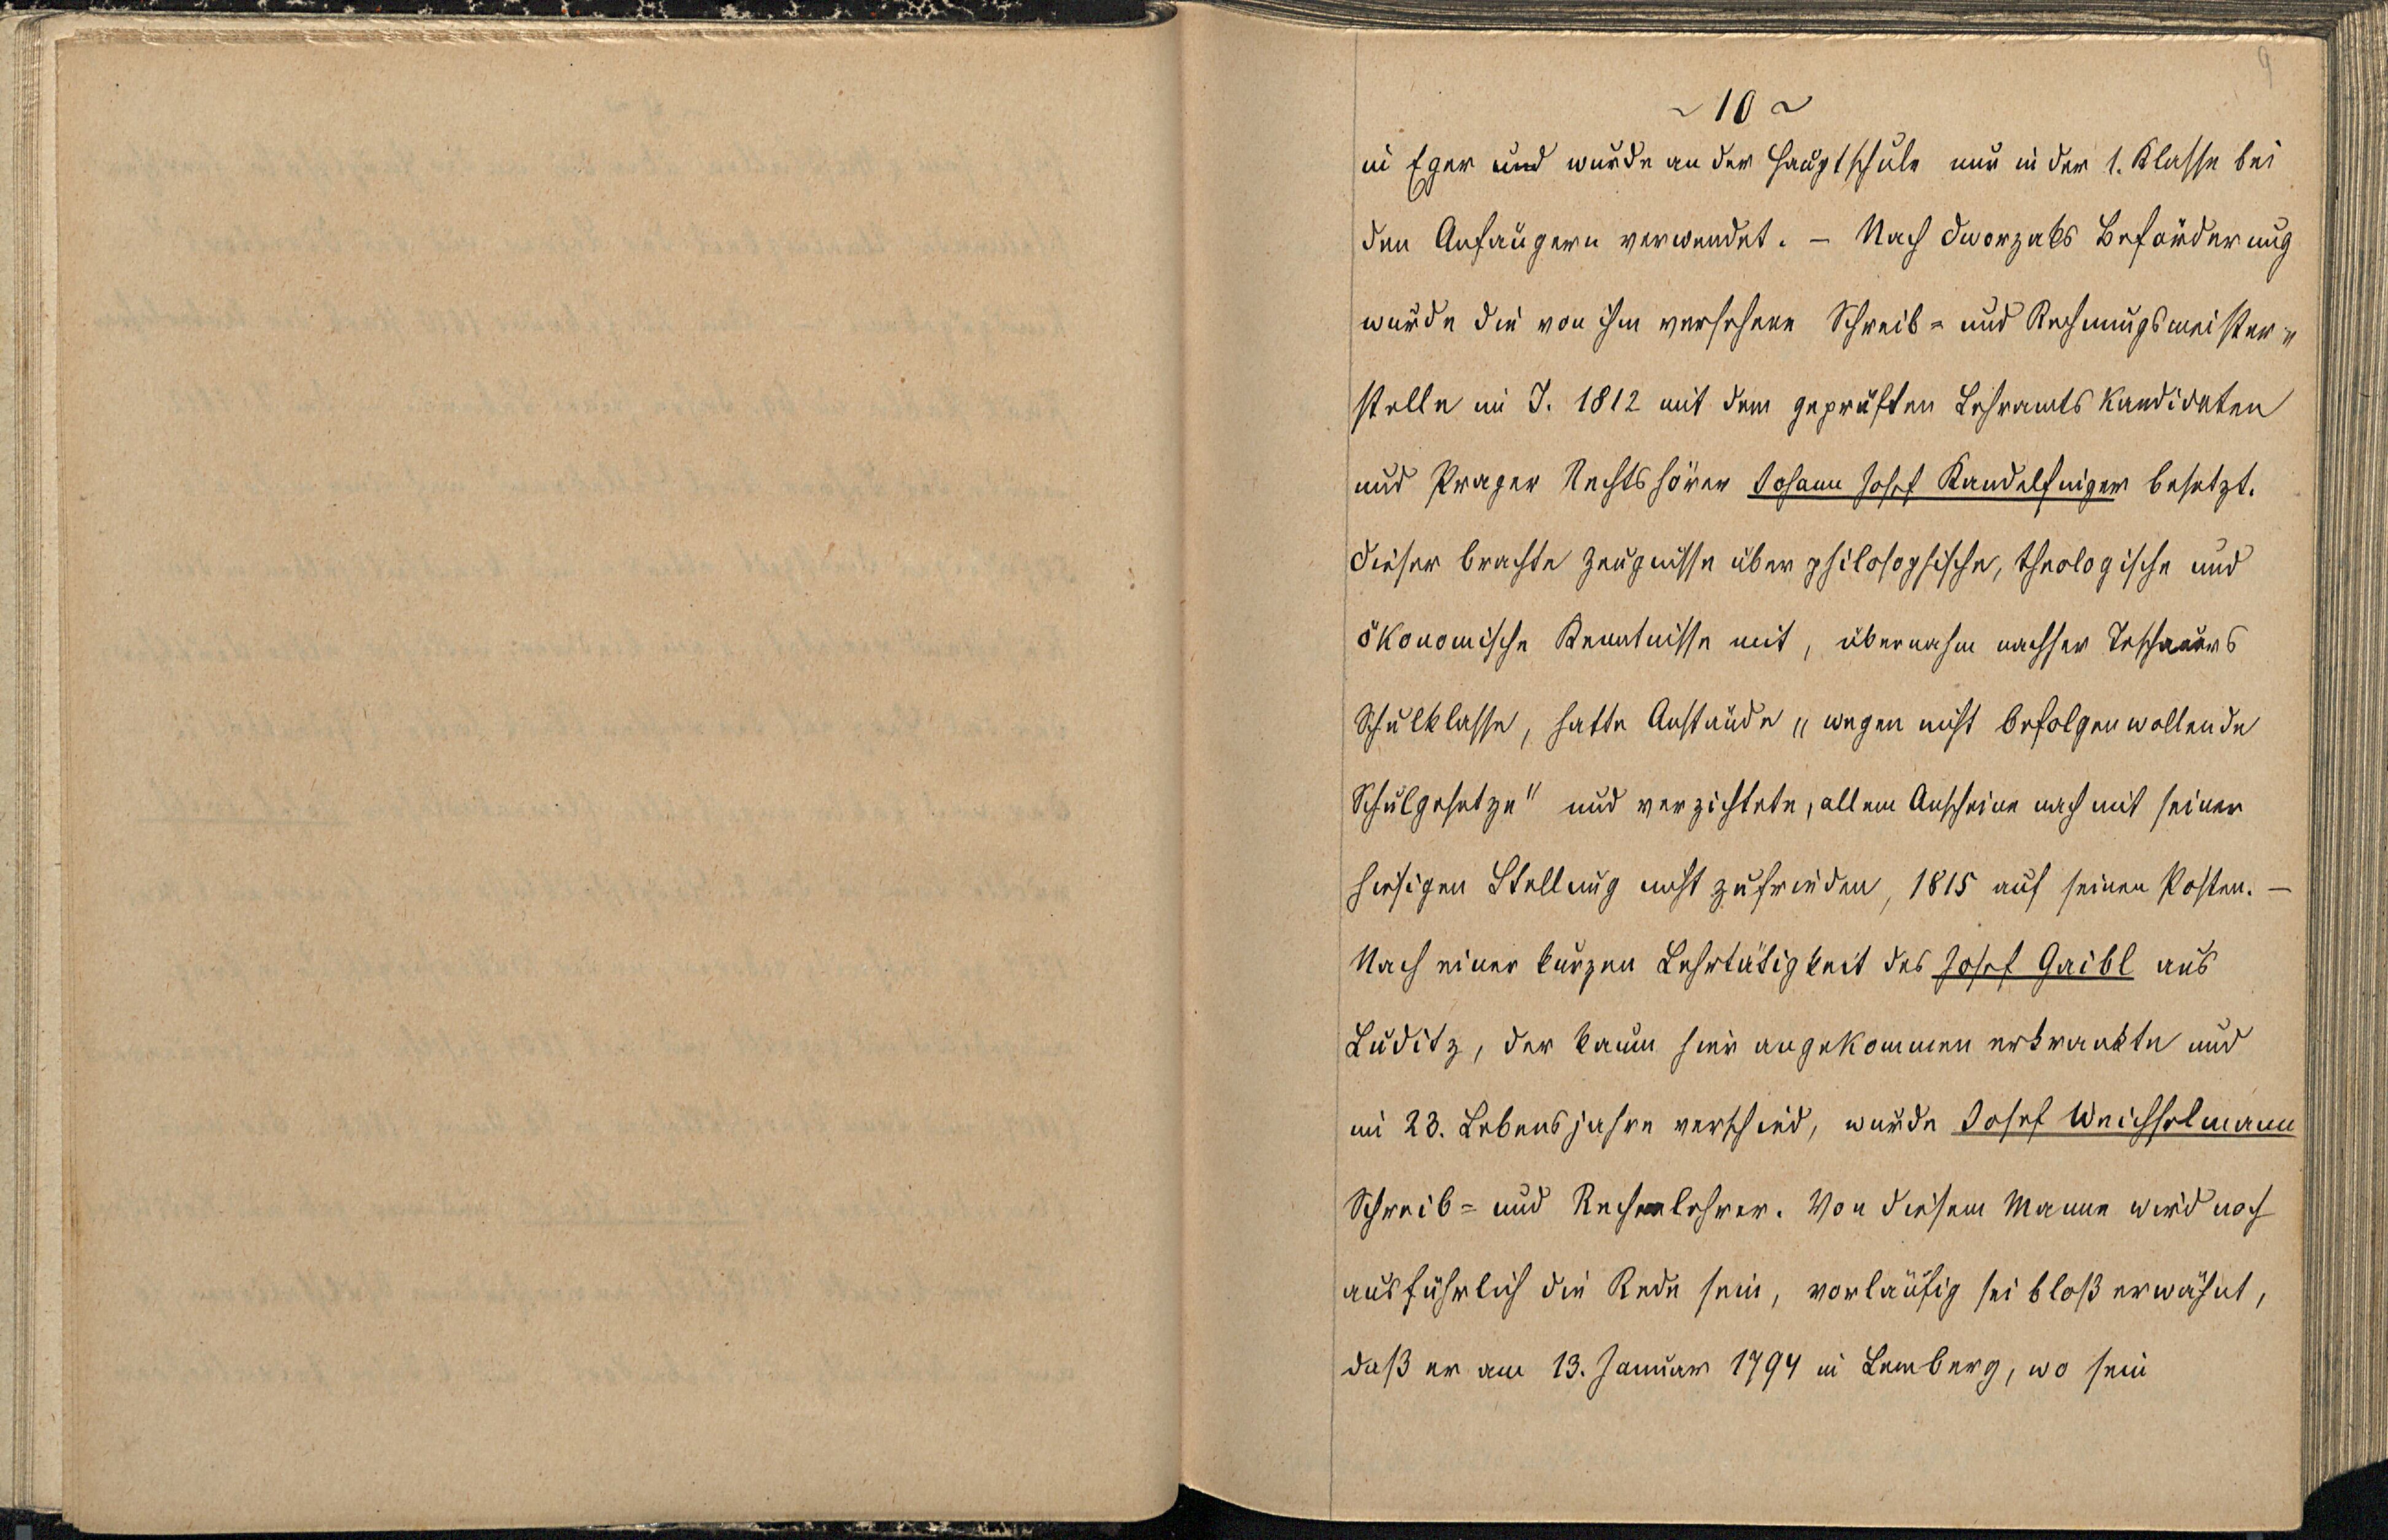 9
~ 10 ~
in Eger und wurde an der Hauptschule nur in der 1. Klasse bei
den Anfängern verwendet. – Nach Dworzaks Beförderung
wurde die von ihm versehene Schreib- und Rechnungsmeister-
stelle im J. 1812 mit dem geprüften Lehramtskandidaten
und Prager Rechtshörer Johann Josef Kandelfinger besetzt.
Dieser brachte Zeugnisse über philosophische, theologische und
ökonomische Kenntnisse mit, übernahm nachher Teschauers
Schulklasse, hatte Anstände „wegen nicht befolgen wollende
Schulgesetze" und verzichtete, allem Anscheine nach mit seiner
hiesigen Stellung nicht zufrieden, 1815 auf seinen Posten. –
Nach einer kurzen Lehrtätigkeit des Josef Gaibl aus
Luditz, der kaum hier angekommen erkrankte und
im 23. Lebensjahre verschied, wurde Josef Weichselmann
Schreib- und Rechenlehrer. Von diesem Manne wird noch
ausführlich die Rede sein, vorläufig sei bloß erwähnt,
daß er am 13. Januar 1794 in Lemberg, wo sein